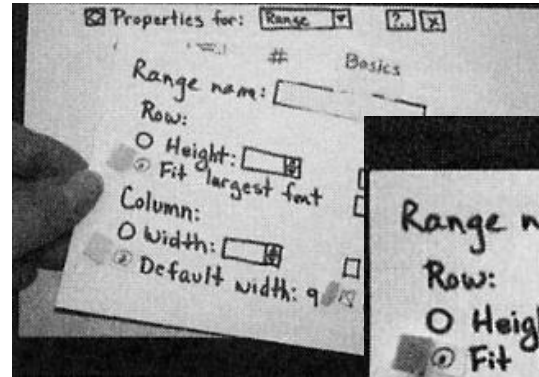 Properties for: Range ?.. X
# Basics
Range name:
Row:
Height:
Fit largest font
Column:
Width:
Default width: 9
Range n
Row:
Heig
Fit